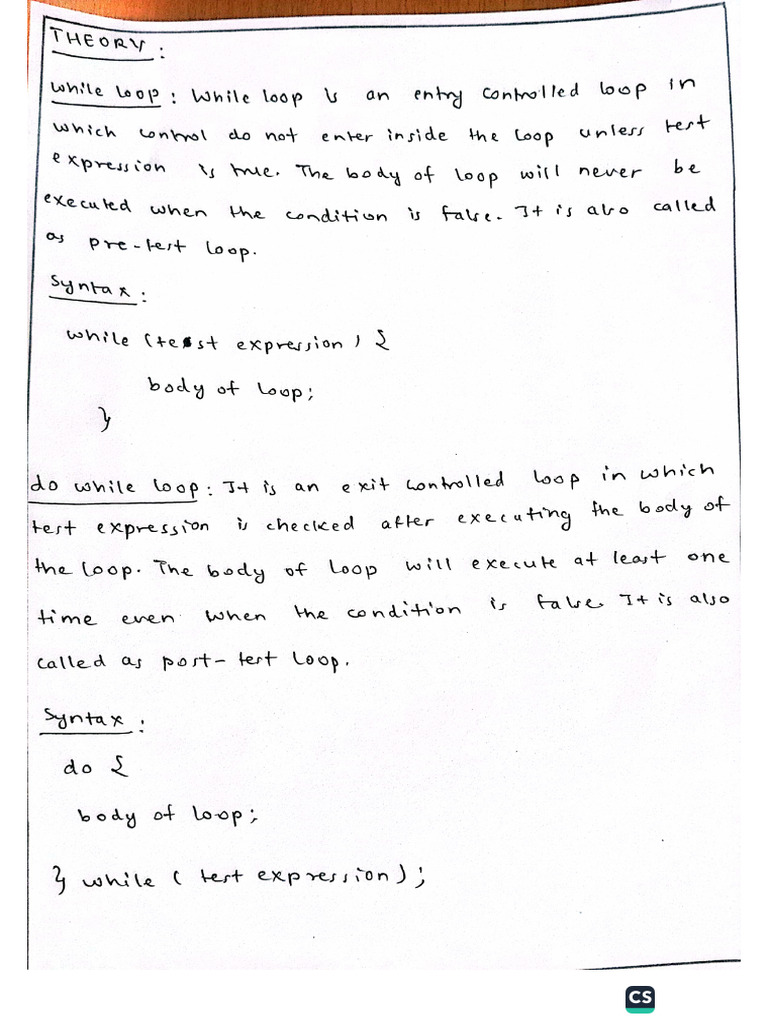 THEORY :
While loop : While loop is an entry controlled loop in
which control do not enter inside the loop unless test
expression is true. The body of loop will never be
executed when the condition is false. It is also called
as pre-test loop.
Syntax :
while (test expression) {
body of loop;
}
do while loop : It is an exit controlled loop in which
test expression is checked after executing the body of
the loop. The body of loop will execute at least one
time even when the condition is false. It is also
called as post-test loop.
Syntax :
do {
body of loop;
} while ( test expression) ;
CS